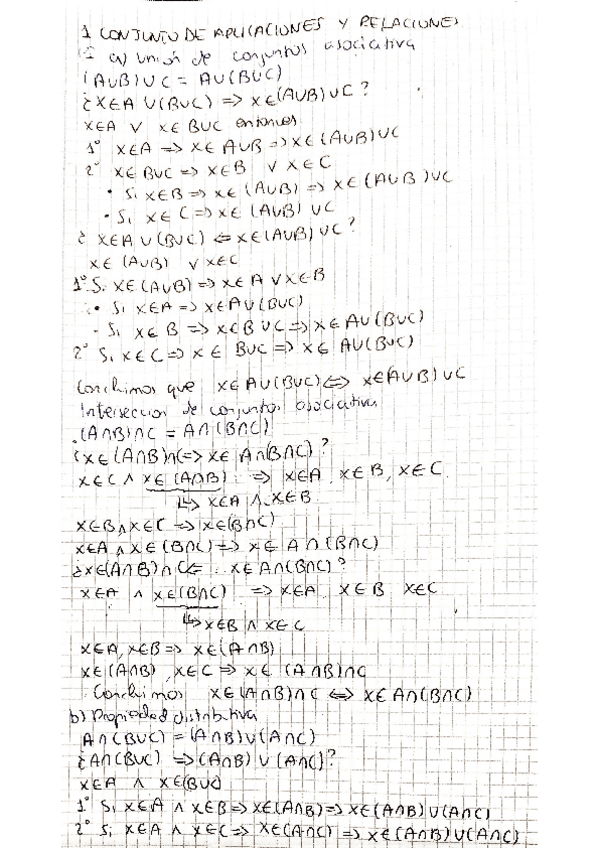 1 CONJUNTO DE APLICACIONES Y RELACIONES
a) unión de conjuntos asociativa
(A∪B)∪C = A∪(B∪C)
¿X∈A ∪(B∪C) => X∈(A∪B)∪C?
X∈A ∨ X∈B∪C entonces
1° X∈A => X∈A∪B => X∈(A∪B)∪C
2° X∈B∪C => X∈B ∨ X∈C
• Si X∈B => X∈(A∪B) => X∈(A∪B)∪C
• Si X∈C => X∈(A∪B)∪C
¿ X∈A∪(B∪C) <= X∈(A∪B)∪C?
X∈(A∪B) ∨ X∈C
1° Si X∈(A∪B) => X∈A ∨ X∈B
• Si X∈A => X∈A∪(B∪C)
- Si X∈B => X∈B∪C => X∈A∪(B∪C)
2° Si X∈C => X∈B∪C => X∈A∪(B∪C)
Concluimos que X∈A∪(B∪C) <=> X∈(A∪B)∪C
Intersección de conjuntos asociativa
(A∩B)∩C = A∩(B∩C)
¿X∈(A∩B)∩C => X∈A∩(B∩C)?
X∈C ∧ X∈(A∩B) => X∈A, X∈B, X∈C
↳ X∈A ∧ X∈B
X∈B ∧ X∈C => X∈(B∩C)
X∈A ∧ X∈(B∩C) => X∈A∩(B∩C)
¿X∈(A∩B)∩C <= X∈A∩(B∩C)?
X∈A ∧ X∈(B∩C) => X∈A X∈B X∈C
↳ X∈B ∧ X∈C
X∈A, X∈B => X∈(A∩B)
X∈(A∩B), X∈C => X∈(A∩B)∩C
Concluimos X∈(A∩B)∩C <=> X∈A∩(B∩C)
b) Propiedad distributiva
A∩(B∪C) = (A∩B)∪(A∩C)
¿A∩(B∪C) => (A∩B)∪(A∩C)?
X∈A ∧ X∈(B∪C)
1° Si X∈A ∧ X∈B => X∈(A∩B) => X∈(A∩B)∪(A∩C)
2° Si X∈A ∧ X∈C => X∈(A∩C) => X∈(A∩B)∪(A∩C)